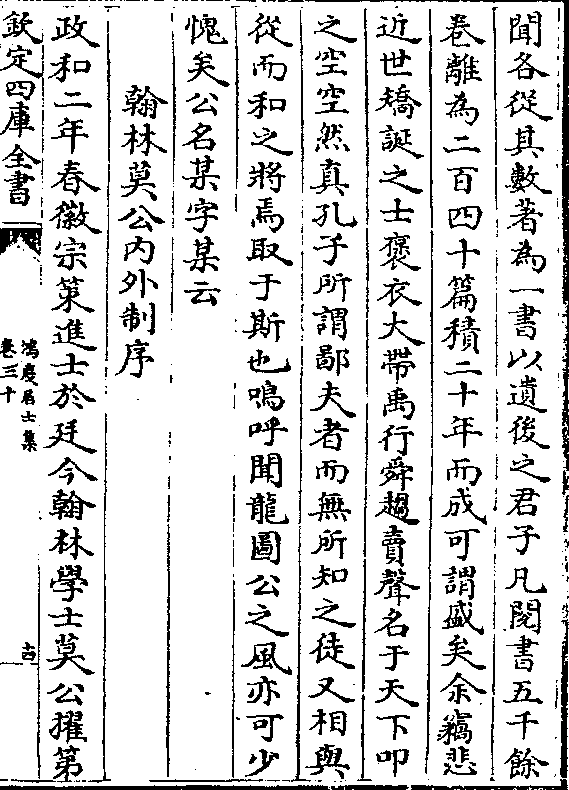 聞各從其數著為一書以遺後之君子凡閱書五千餘
卷離為二百四十篇積二十年而成可謂盛矣余竊悲
近世矯誕之士襃衣大帶禹行舜趨賣聲名于天下叩
之空空然真孔子所謂鄙夫者而無所知之徒又相與
從而和之將焉取于斯也嗚呼聞龍圖公之風亦可少
愧矣公名某字某云
翰林莫公內外制序
政和二年春徽宗策進士於廷今翰林學士莫公擢第
欽定四庫全書
鴻慶居士集
卷三十
十四